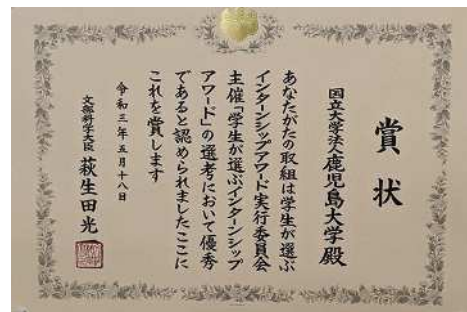 賞状
国立大学法人鹿児島大学殿
あなたがたの取組は学生が選ぶ
インターンシップアワード実行委員会
主催「学生が選ぶインターンシップ
アワード」の選考において優秀
であると認められましたここに
これを賞します
令和三年五月十八日
文部科学大臣 萩生田光一